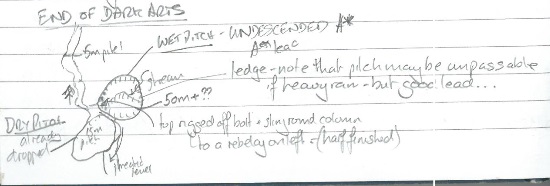 END OF DARK ARTS
WET PITCH - UNDESCENDED A*
A** lead
5m pitch
stream
ledge - note that pitch may be unpassable
if heavy rain - but good lead...
50m + ??
DRY PITCH
already
dropped
15m
pitch
top rigged off bolt + sling round column
to a rebelay on left - (half finished)